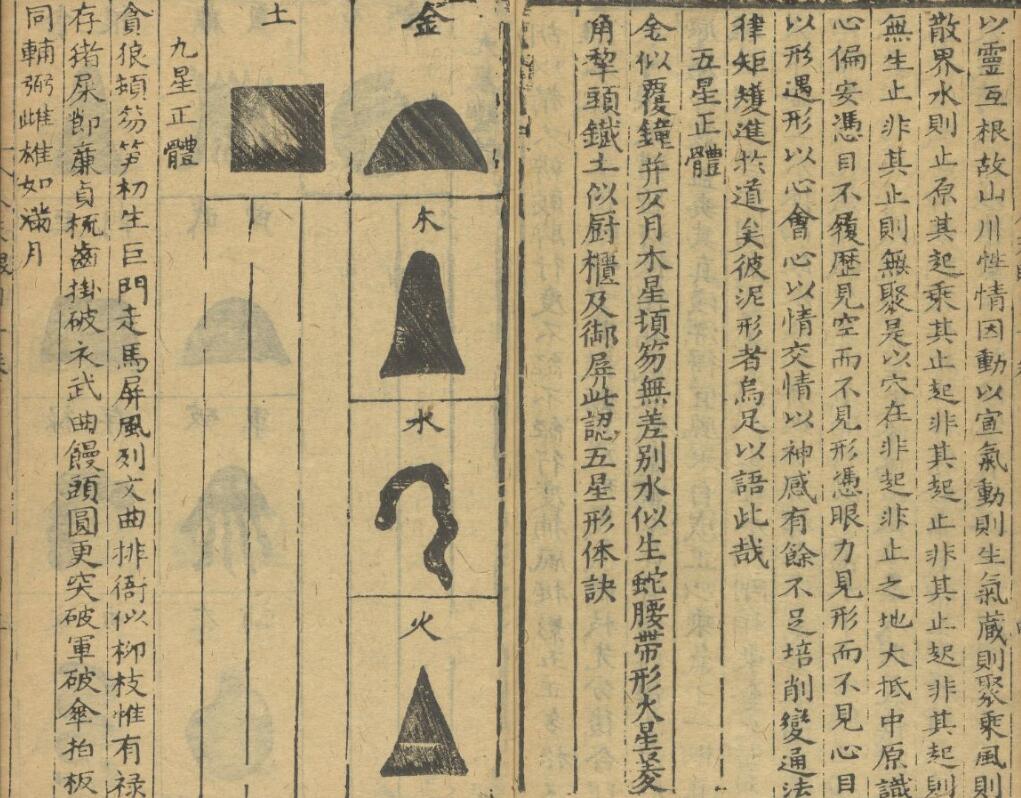 以靈互根故山川性情因動以宣氣動則生氣蔵則聚乘風則
散界水則止原其起乘其止起非其起止非其止起非其起則
無生止非其止則無聚是以穴在非起非止之地大抵中原識
心偏安憑目不履歷見空而不見形憑眼力見形而不見心目
以形遇形以心會心以情交情以神感有餘不足培削變通法
律矩矱進於道矣彼泥形者烏足以語此哉
五星正體
金似覆鐘并仄月木星頓笏無差别水似生蛇腰帶形火星菱
角犂頭鐵土似厨櫃及御屏此認五星形体訣
金
木
水
火
土
九星正體
貪狼頓笏笋初生巨門走馬屏風列文曲排衙似柳枝惟有禄
存猪屎節廉貞梳齒掛破衣武曲饅頭圓更突破軍破傘拍板
同輔弼雌雄如滿月